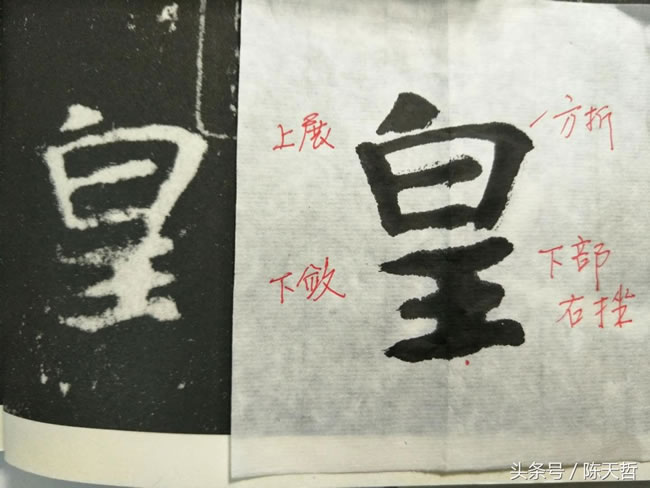 皇
皇
上展
方折
下敛
下部
右挫
头条号 / 陈天哲